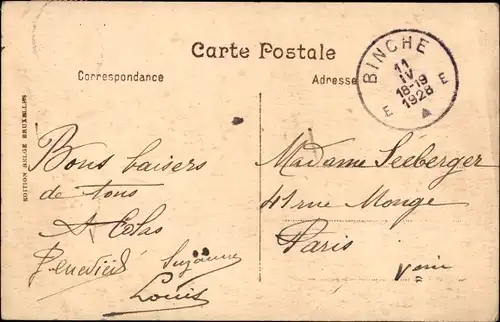 Carte Postale
Correspondance
Adresse
BINCHE
11
IV
18-19
1928
E E
EDITION BELGE BRUXELLES
Bons baisers
de tous
Suzanne
Louis
Madame Seeberger
41 rue Monge
Paris